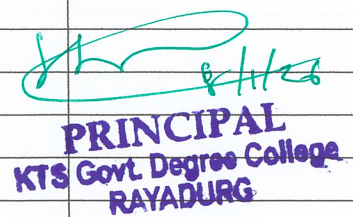 8/1/26
PRINCIPAL
KTS Govt. Degree College
RAYADURG